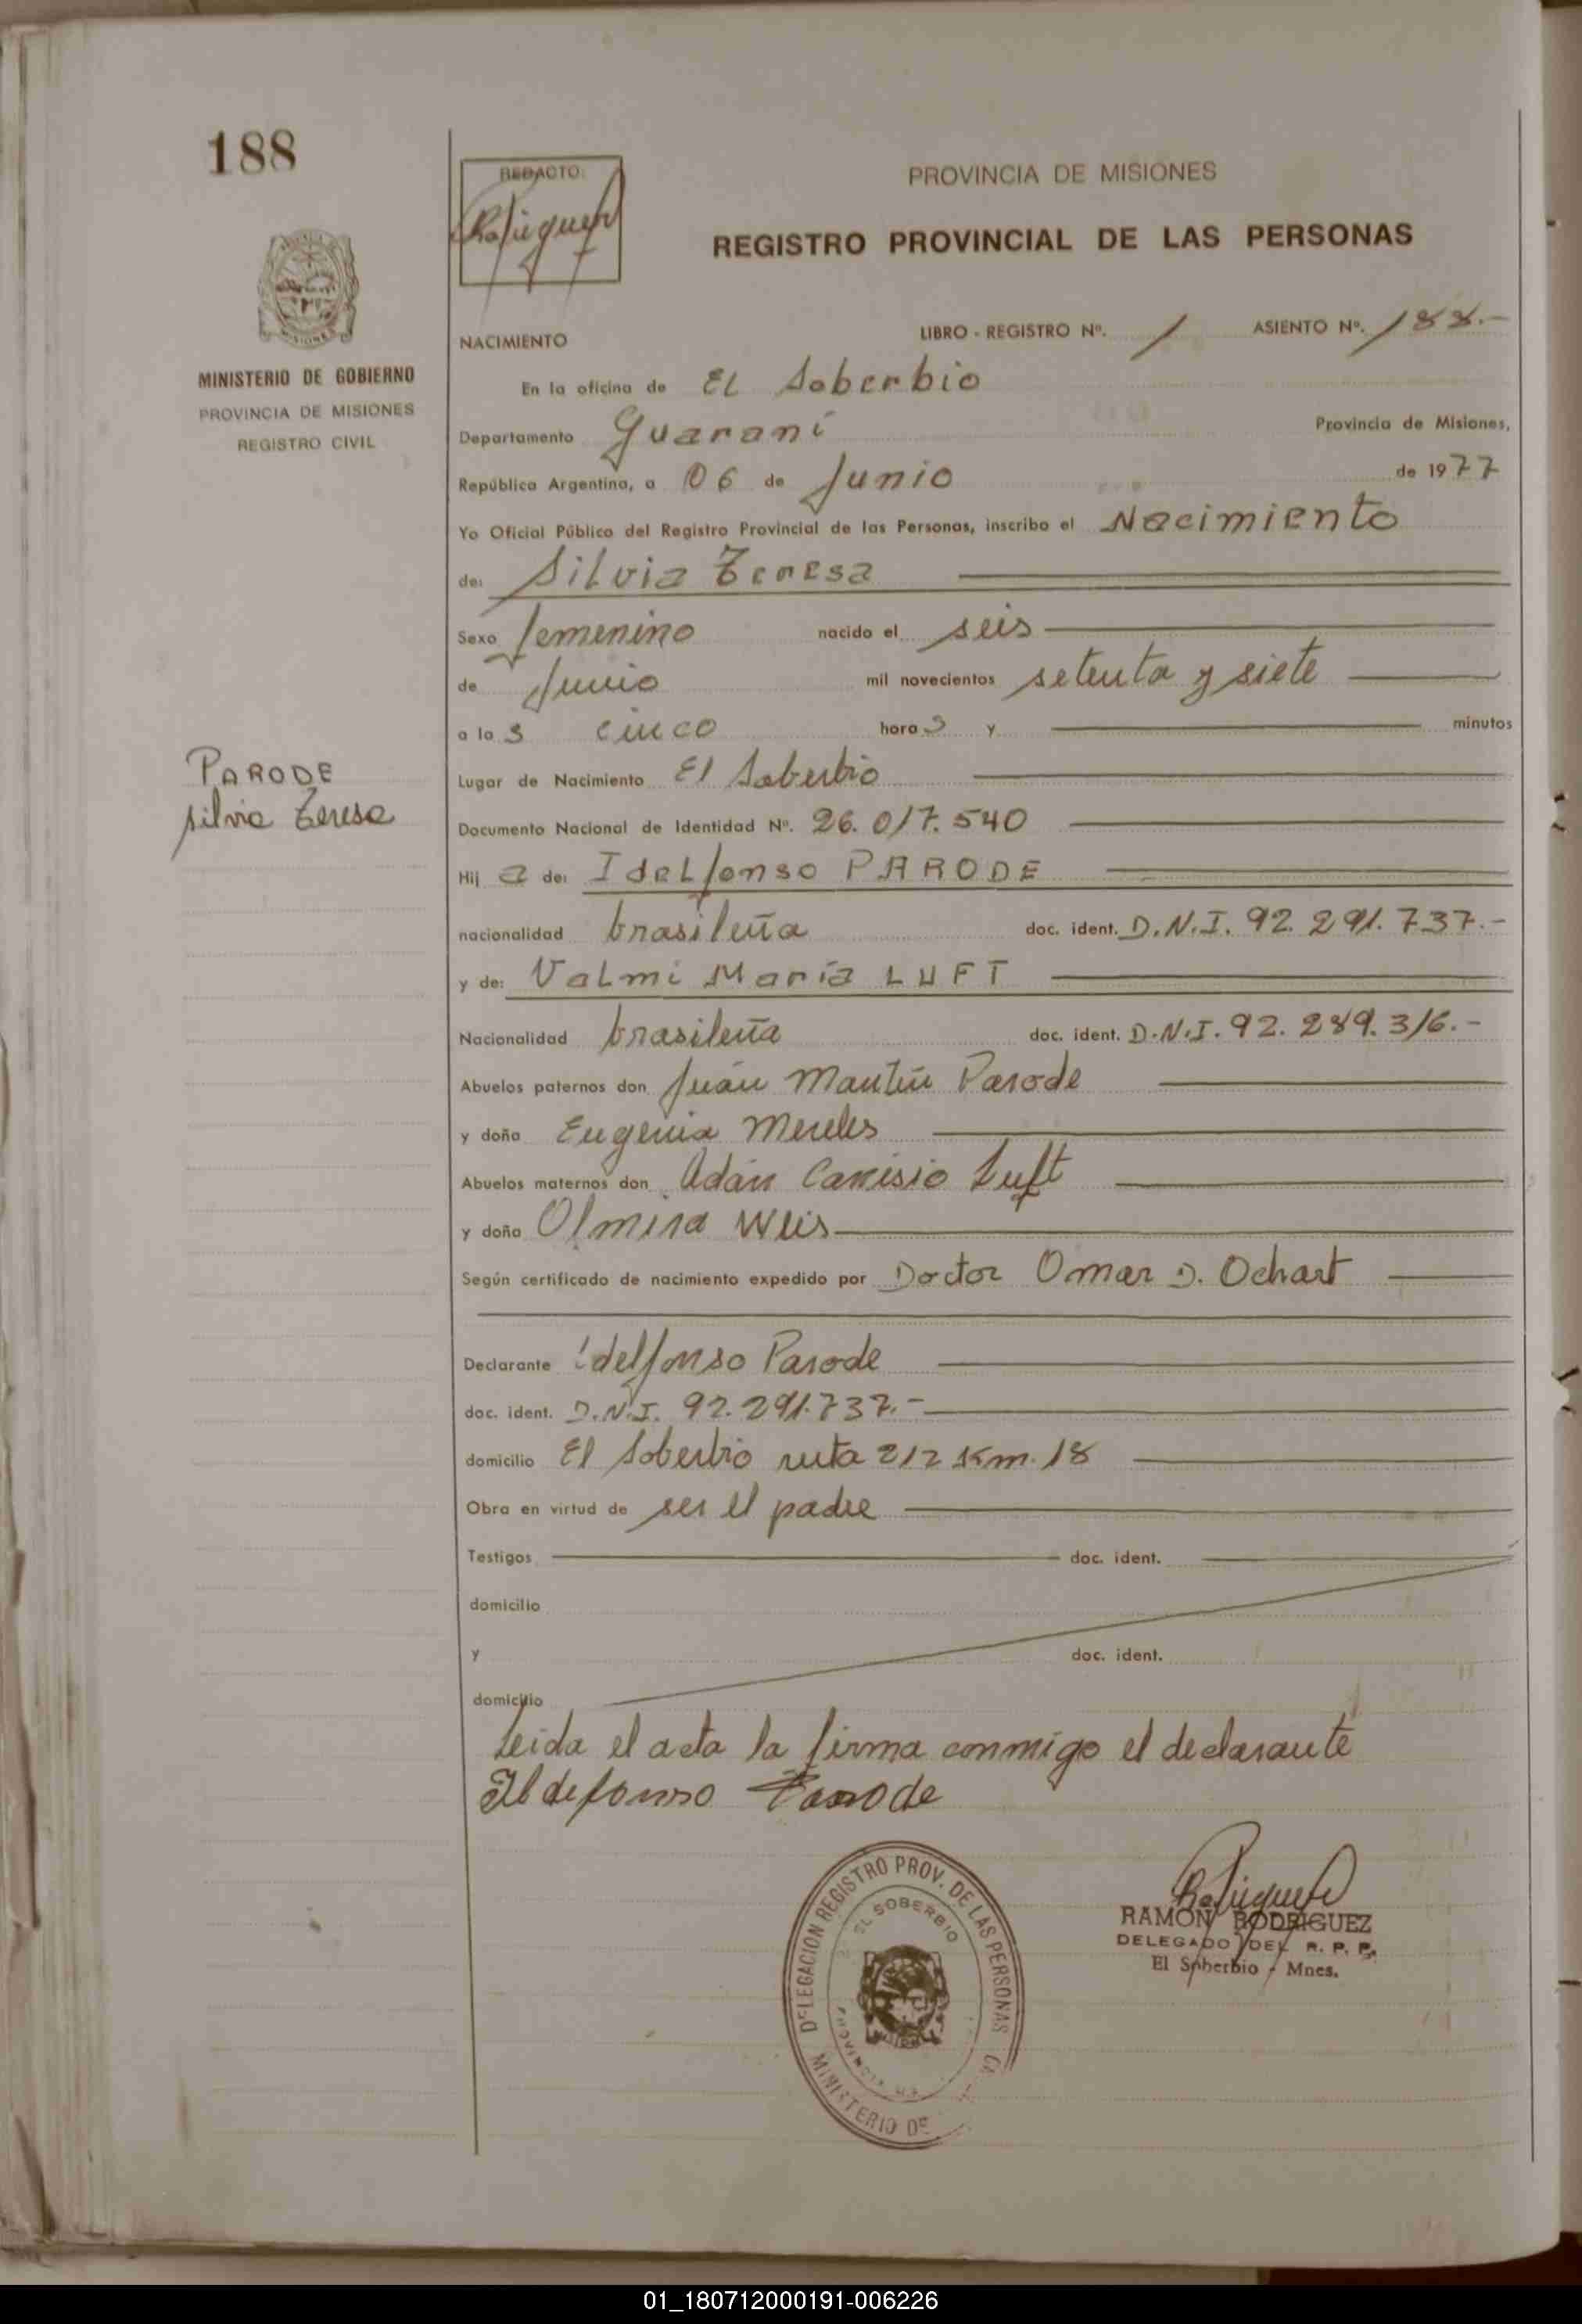 188
REDACTO:
PROVINCIA DE MISIONES
REGISTRO PROVINCIAL DE LAS PERSONAS
MISIONES
MINISTERIO DE GOBIERNO
PROVINCIA DE MISIONES
REGISTRO CIVIL
NACIMIENTO LIBRO - REGISTRO Nº. 1 ASIENTO Nº. 188.-
En la oficina de EL Soberbio
Departamento Guaraní Provincia de Misiones,
República Argentina, a 06 de Junio de 1977
Yo Oficial Público del Registro Provincial de las Personas, inscribo el Nacimiento
de: Silvia Teresa
Sexo femenino nacido el seis
de Junio mil novecientos setenta y siete
a la s cinco hora s y minutos
PARODE
Silvia Teresa
Lugar de Nacimiento El Soberbio
Documento Nacional de Identidad Nº. 26.017.540
Hij a de: Idelfonso PARODE
nacionalidad brasileña doc. ident. D.N.I. 92.291.737.-
y de: Valmi María LUFT
Nacionalidad brasileña doc. ident. D.N.I. 92.289.316.-
Abuelos paternos don Juán Martín Parode
y doña Eugenia Mereles
Abuelos maternos don Adán Canisio Luft
y doña Olmira Weis
Según certificado de nacimiento expedido por Doctor Omar D. Ochart
Declarante Idelfonso Parode
doc. ident. D.N.I. 92.291.737.-
domicilio El Soberbio ruta 212 Km. 18
Obra en virtud de ser el padre
Testigos doc. ident.
domicilio
y doc. ident.
domicilio
Leida el acta la firma conmigo el declarante
Ildefonso Parode
DELEGACION REGISTRO PROV. DE LAS PERSONAS
EL SOBERBIO
MINISTERIO DE
RAMON RODRIGUEZ
DELEGADO DEL R. P. P.
El Soberbio - Mnes.
01_180712000191-006226